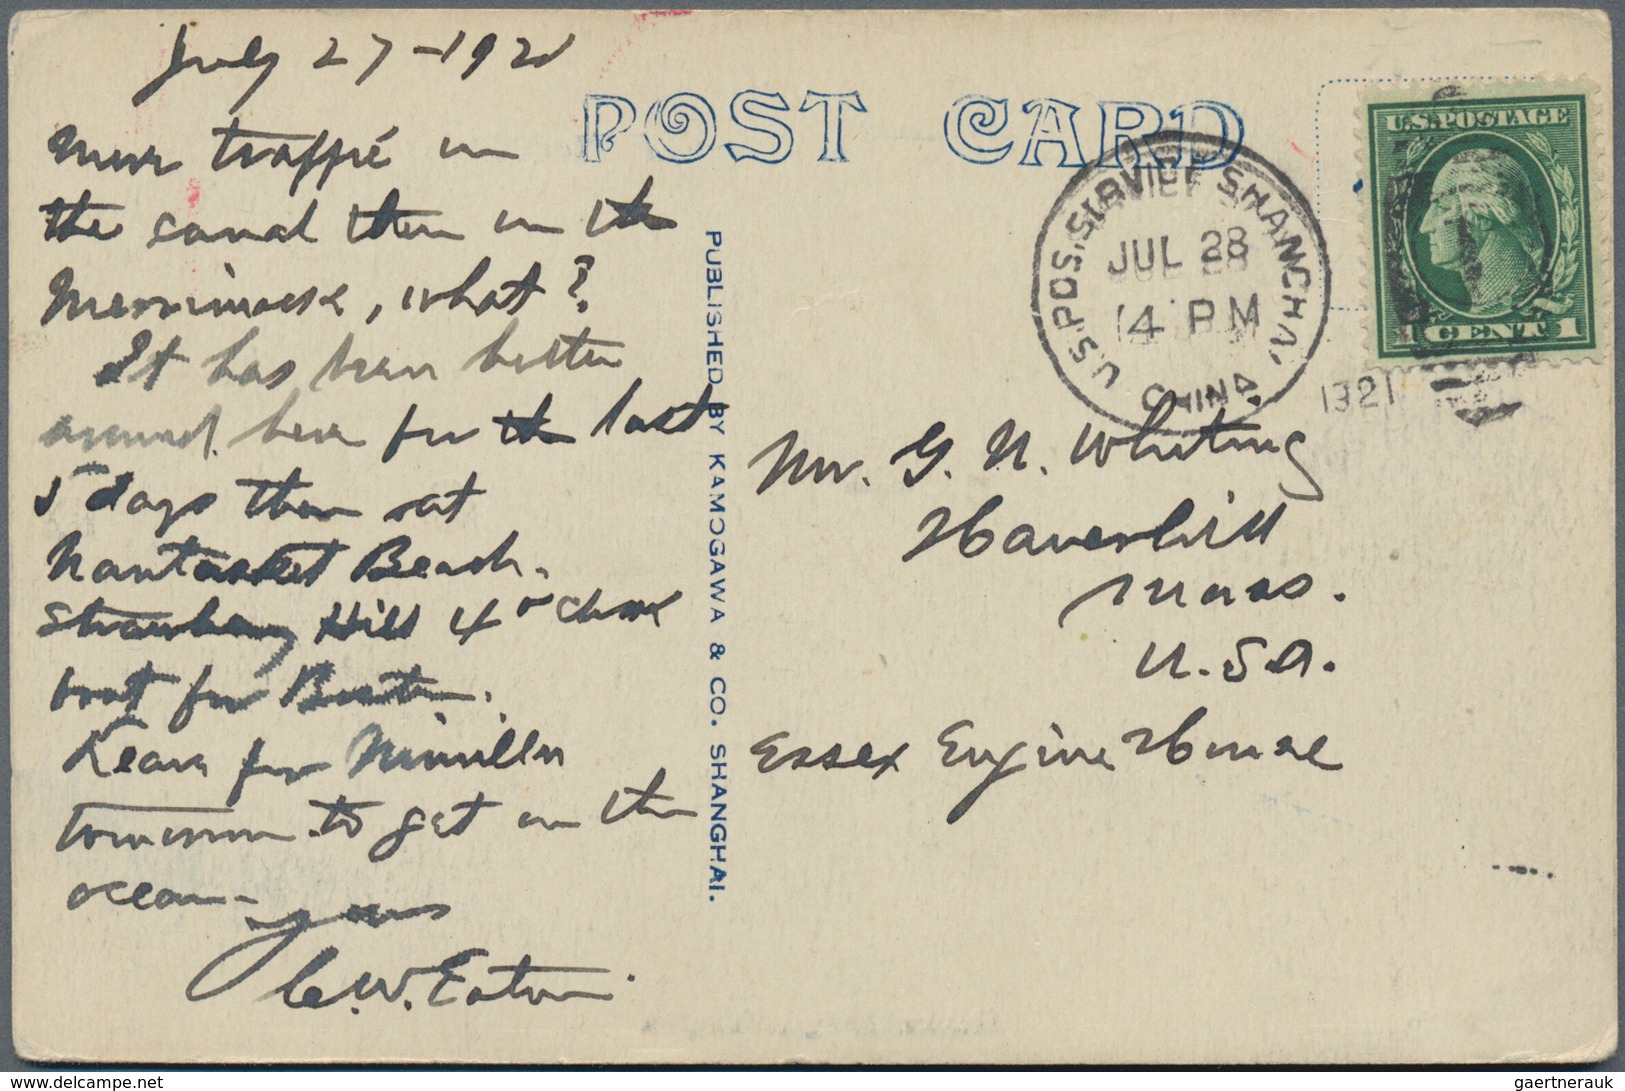 July 27-1921
POST CARD
More traffic on
the canal then on the
Merrimack, what?
It has been hotter
around here for the last
5 days then at
Nantasket Beach.
Strawberry Hill 4 o'clock
boat for Boston.
Leave for
tomorrow to get on the
ocean-
yours
C.W. Eaton.
PUBLISHED BY KAMOGAWA & CO. SHANGHAI.
U.S. POSTAGE
1 CENT 1
U.S. POS. SERVICE SHANGHAI,
JUL 28
4 PM
1921
CHINA
Mr. G. N. Whiting
Haverhill
Mass.
U.S.A.
Essex Engine House
gaertnerauk